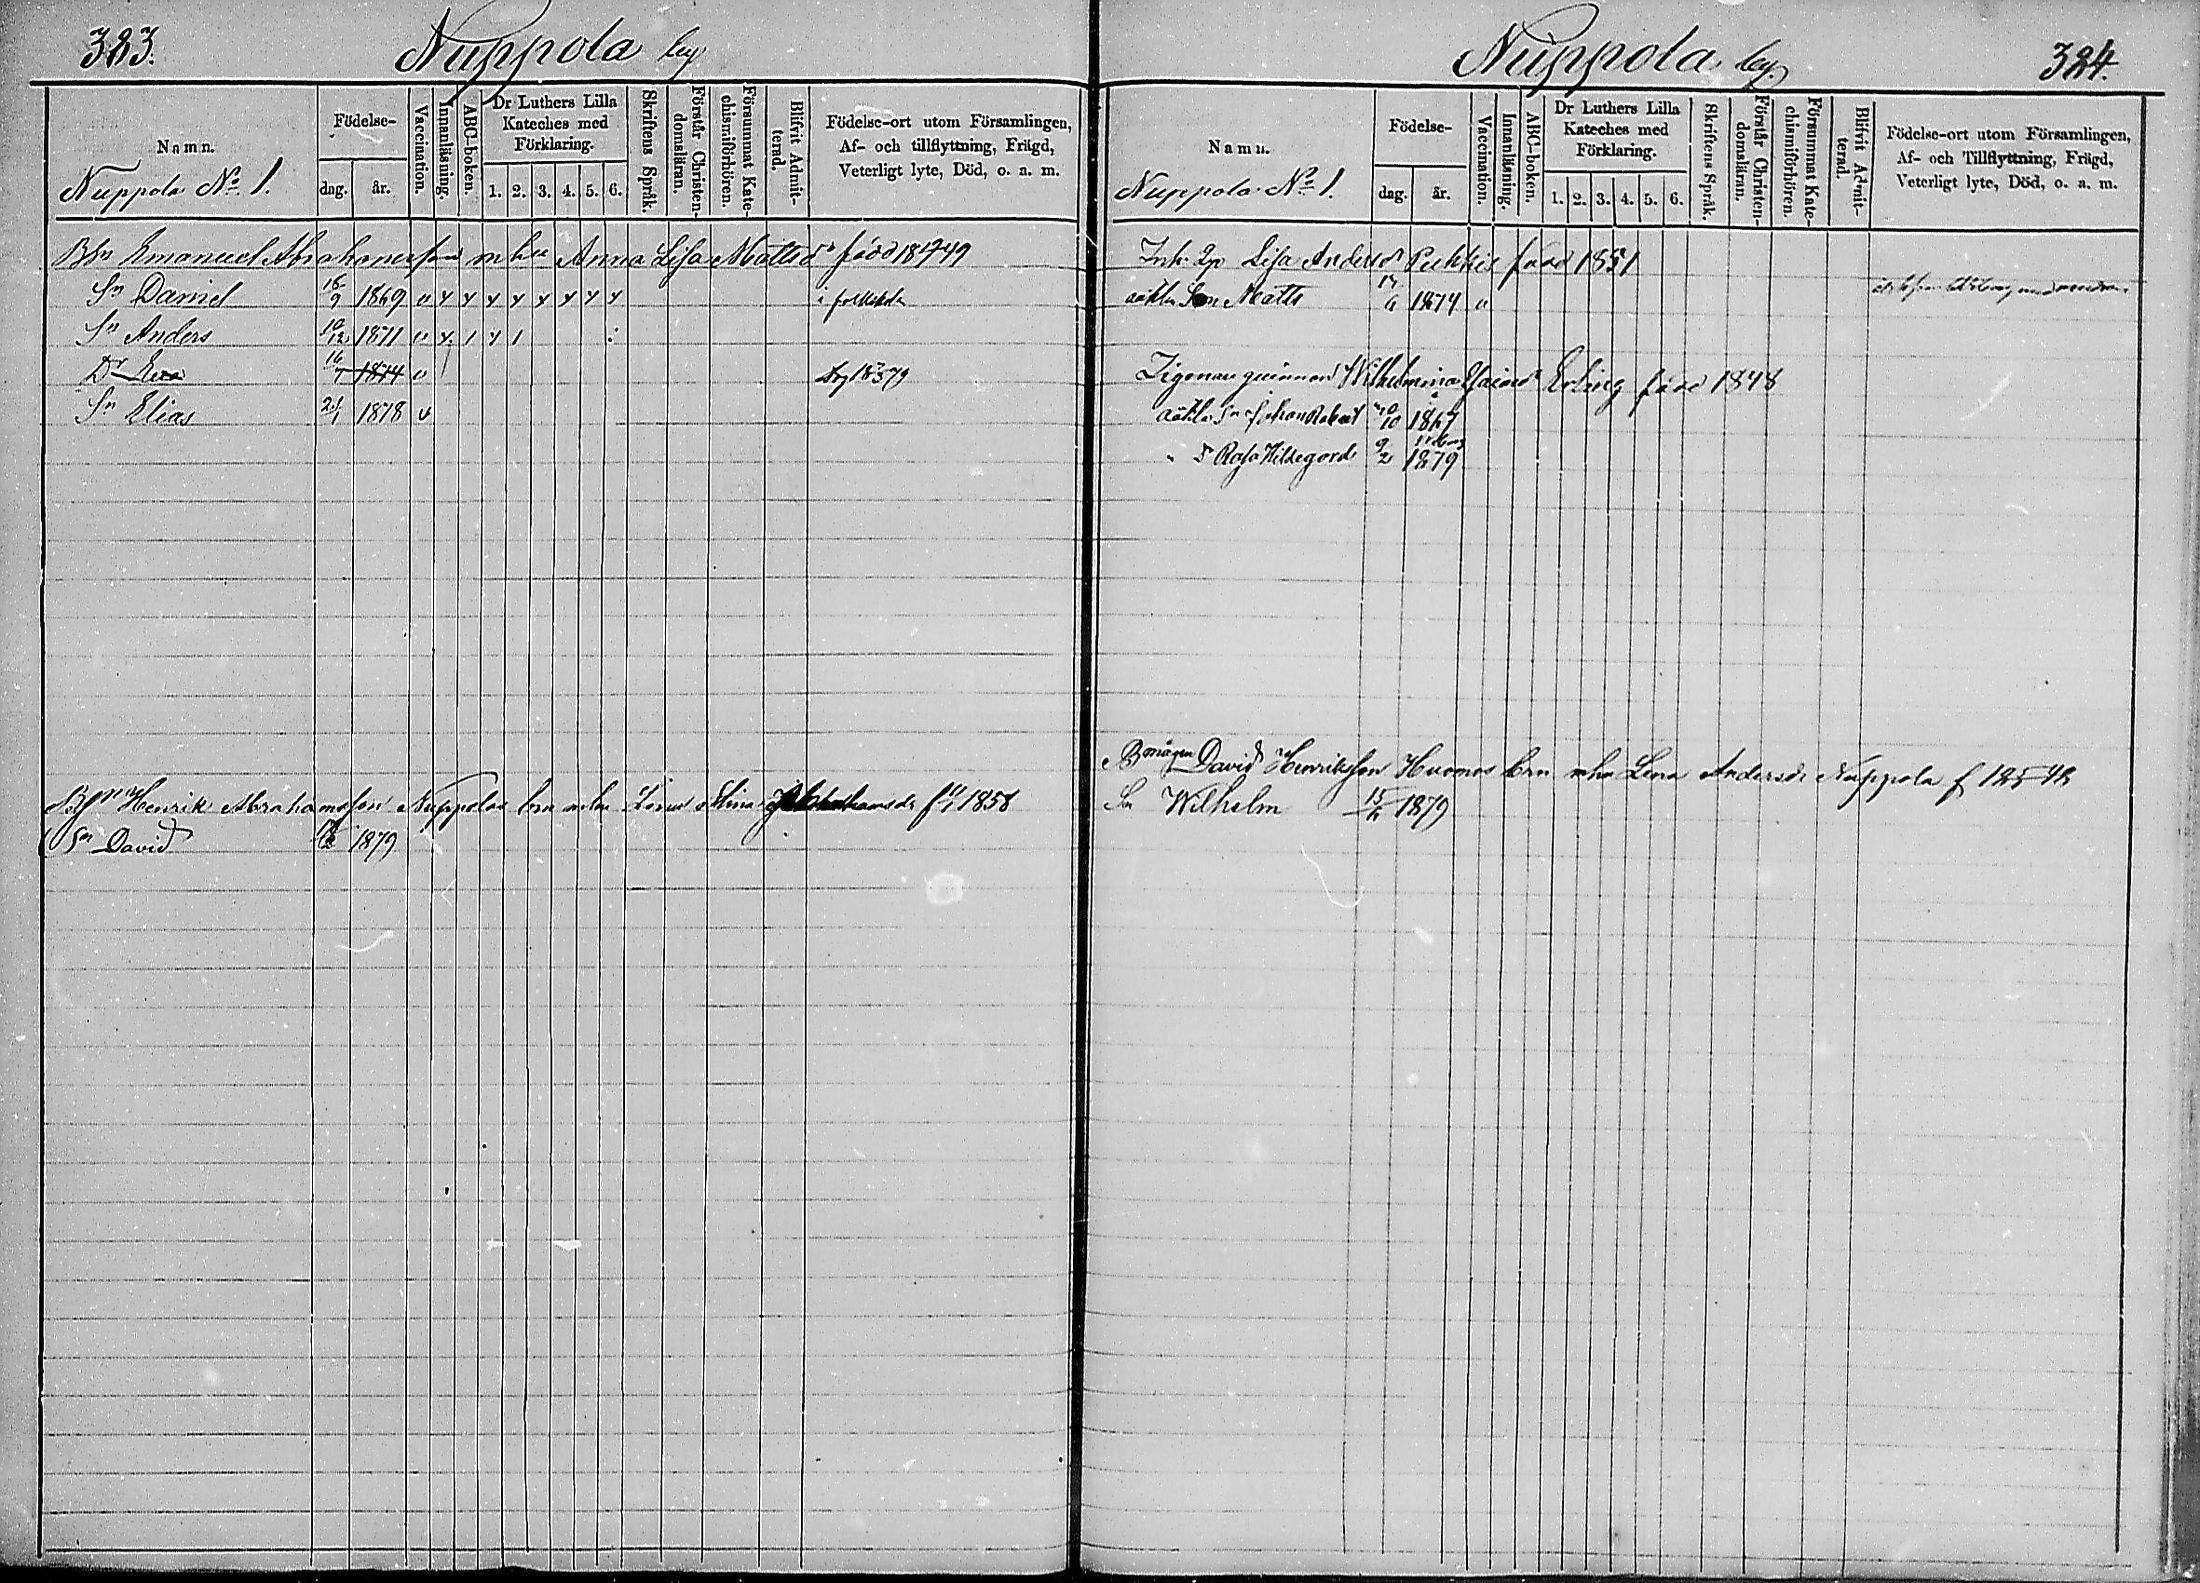 323.
Nuppola by
Namn.
Födelse-
dag. år.
Vaccination.
Innanläsning.
ABC-boken.
Dr Luthers Lilla
Kateches med
Förklaring.
1. 2. 3. 4. 5. 6.
Skriftens Språk.
Förstår Christen-
domsläran.
Försummat Kate-
chismiförhören.
Blifvit Admit-
terad.
Födelse-ort utom Församlingen,
Af- och tillflyttning, Frägd,
Veterligt lyte, Död, o. a. m.
Nuppola No 1.
Emanuel Abrahamsson m hu Anna Lisa Mattsdr född 1849
Sn Daniel 9 1869 v
Sn Anders 10/12 1871 v
Dr Eva 16/7 1874 v
Sn Elias 1878 v
Henrik Abrahamsson Nuppolas brn m hu Stina 1858
Sn David 1879
Nuppola by.
324.
Namn.
Födelse-
dag. år.
Vaccination.
Innanläsning.
ABC-boken.
Dr Luthers Lilla
Kateches med
Förklaring.
1. 2. 3. 4. 5. 6.
Skriftens Språk.
Förstår Christen-
domsläran.
Försummat Kate-
chismiförhören.
Blifvit Admit-
terad.
Födelse-ort utom Församlingen,
Af- och Tillflyttning, Frägd,
Veterligt lyte, Död, o. a. m.
Nuppola No 1.
Inh. Lisa Andersdr född 1851
oäkta Son Matts 6 1874 v
Zigenare qvinnan Wilhelmina Erling född 1848
oäkta Sn Johan Robert 10 1867
" D Rosa Hildegard 9/2 1879
David Henriksson brn m hu Lena Andersdr Nuppola f
Sn Wilhelm 15 1879